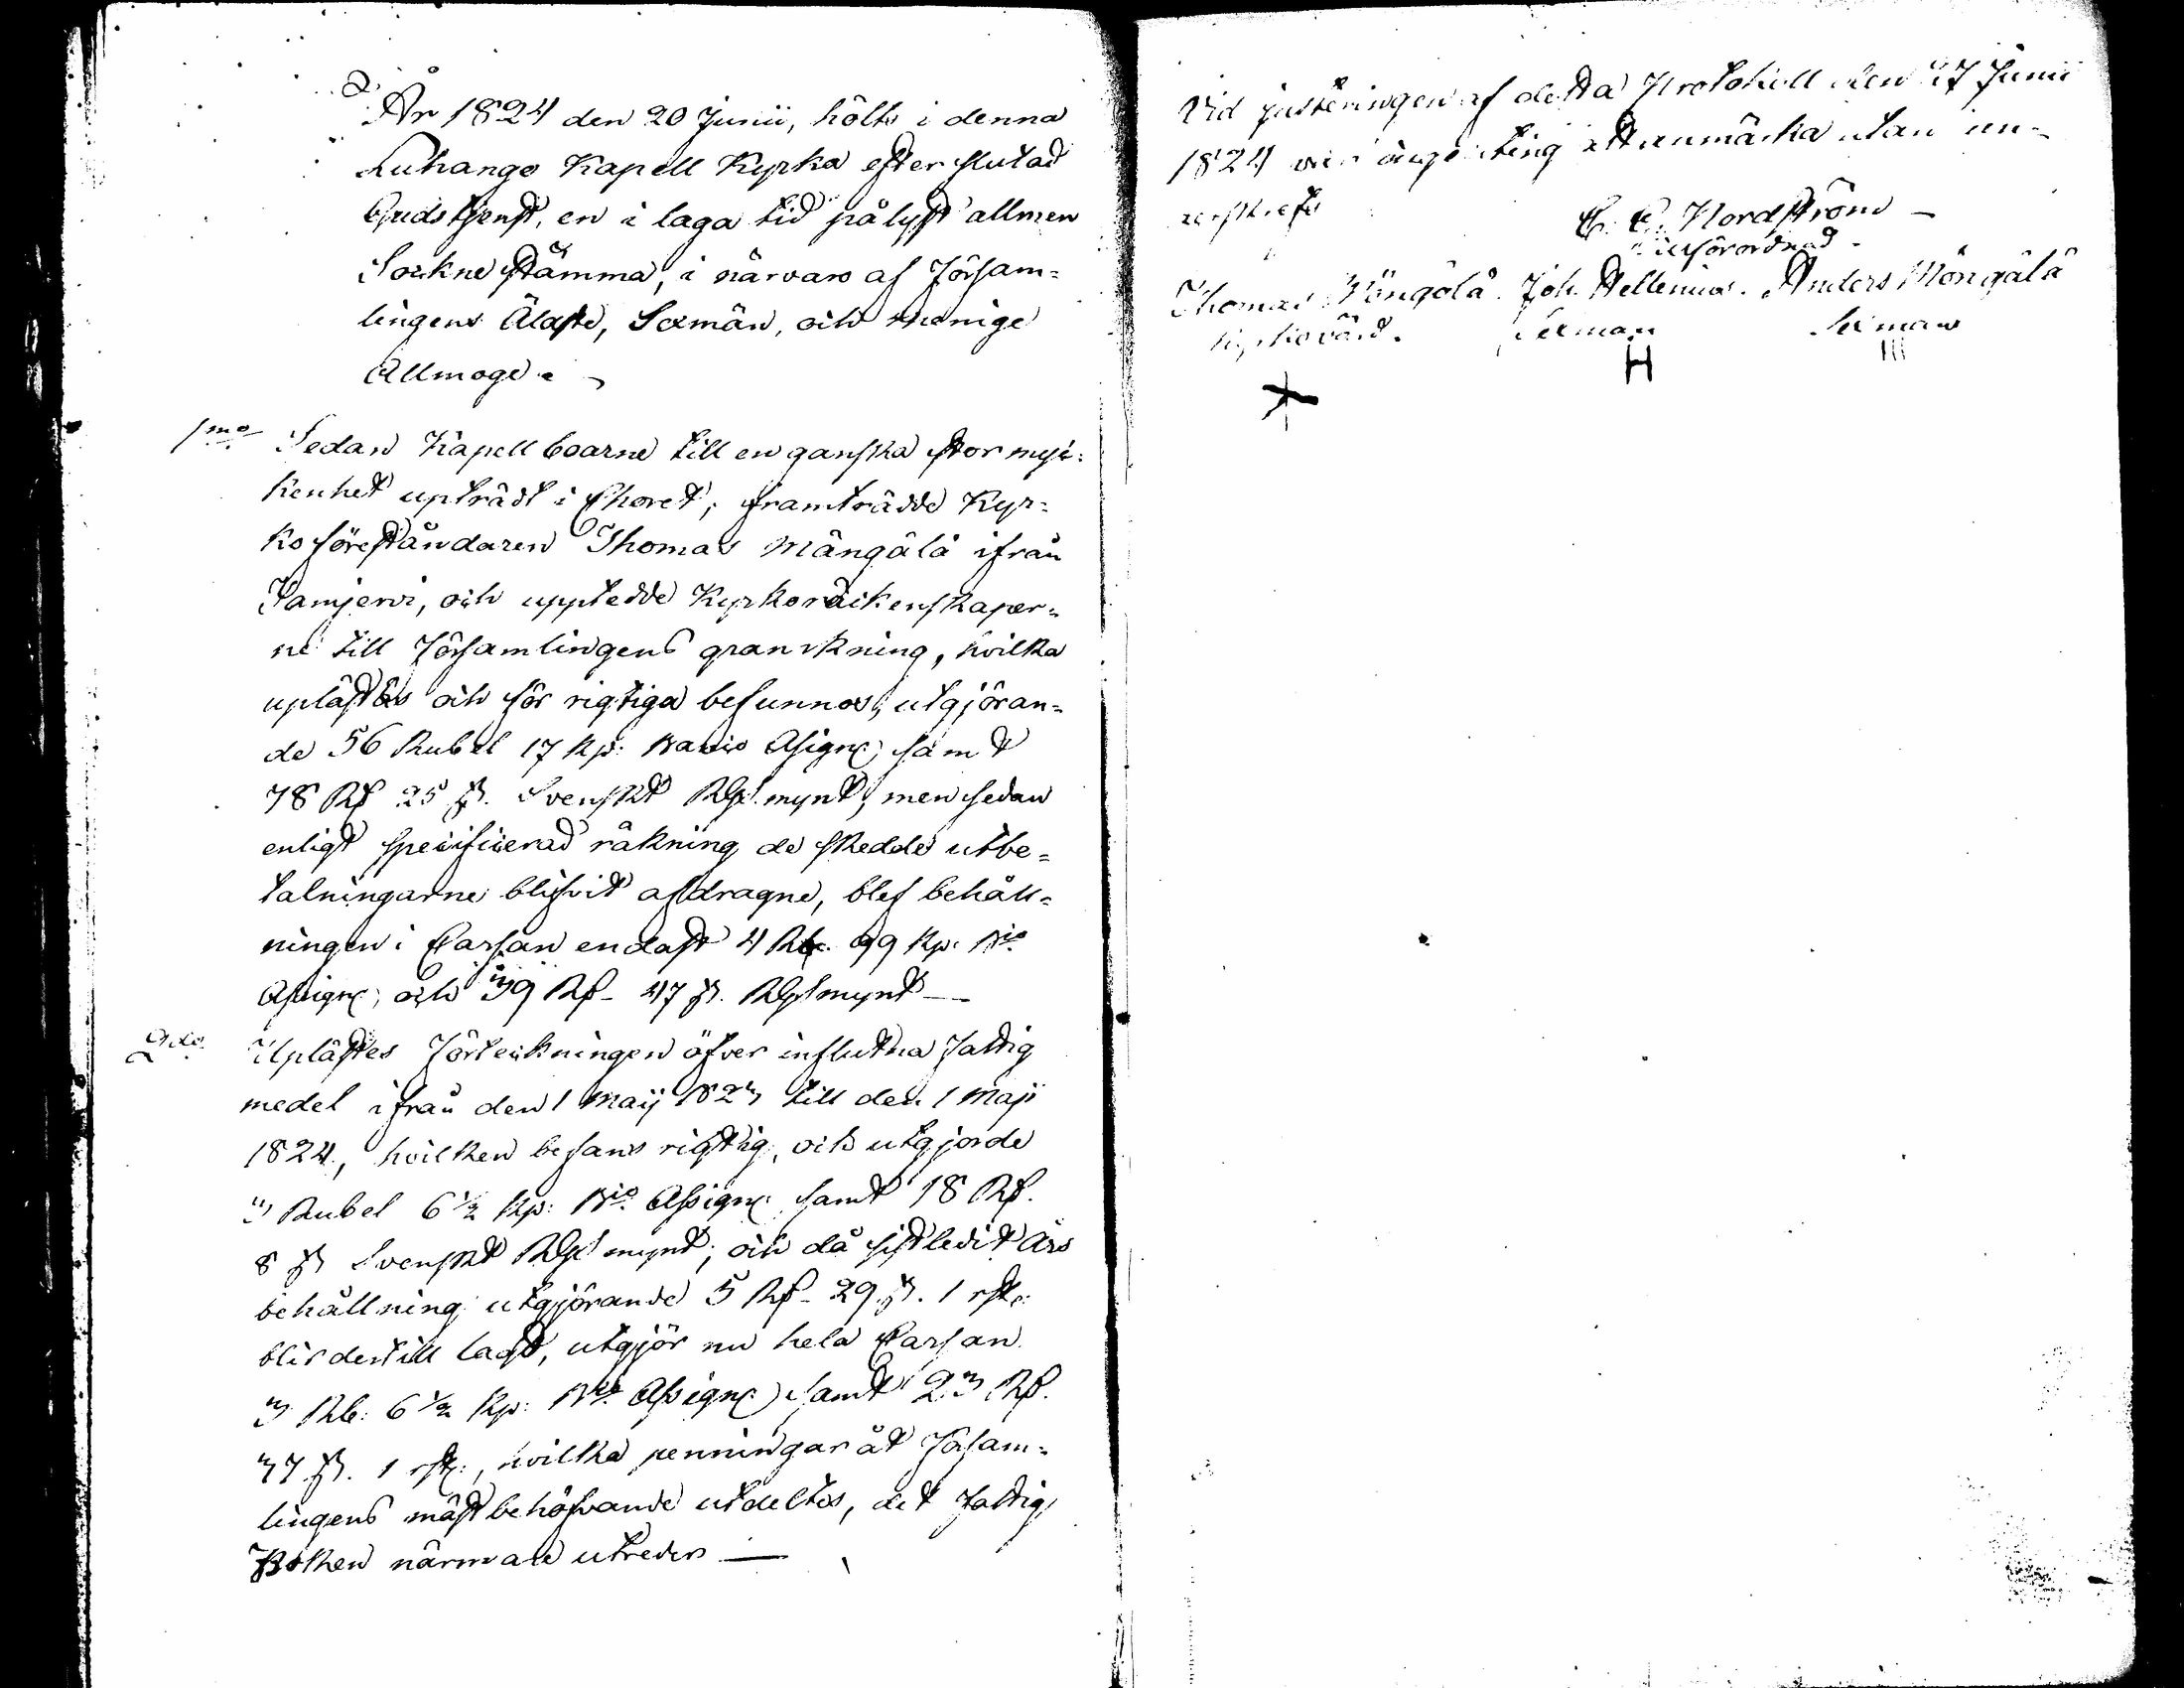 År 1824 den 20 Junii, hölts i denna
Luhango Kapell Kyrka efter slutad
Gudstjenst, en i laga tid pålyst allmen
Sockne Stämma, i närvaro af Försam-
lingens Äldste, Sexmän, och menige
Allmoge.
1mo Sedan Kapellboarne till en ganska stor myc-
kenhet upträdt i Choret, framträdde Kyr-
koföreståndaren Thomas Mängälä ifrån
Tamjervi, och uppledde Kyrkoräckenskaper-
ne till Församlingens granskning, hvilka
uplästes och för rigtiga befunnos, utgjöran-
de 56 Rubel 17 Kp: Banco Assign: samt
78 Rd 25 s. Svenskt Rgs mynt, men sedan
enligt specificerad räkning de skedde utbe-
talningarne blifvit afdragne, blef behåll-
ningen i Cassan endast 4 Rb. 99 Kp. Bco
Assign: och 39 Rd 47 s. Rgs mynt —
2do Uplästes Förteckningen öfver influtna Fattig
medel ifrån den 1 Maij 1823 till den 1 Maji
1824, hvilken befans rigtig, och utgjorde
3 Rubel 6 1/2 Kp: Bco Assign: samt 18 Rd.
8 s Svenskt Rgs mynt, och då sistledit Års
behållning utgjörande 5 Rd 29 s. 1 rst:
blir dertill lagd, utgjör nu hela Cassan
3 Rb: 6 1/2 Kp: Bco Assign: samt 23 Rd.
37 s. 1 rst:, hvilka penningar åt Försam-
lingens mäst behöfvande utdeltes, det Fattig
Boken närmare utreder —
Vid justeringen af detta Protokoll den 27 Junii
1824 var ingenting att anmärka utan un-
derskrefs
C. E. Nordström —
Thomas Mängälä. Joh. Hellenius. Anders Mängälä
Kyrkovärd. Sexman Sexman
H III